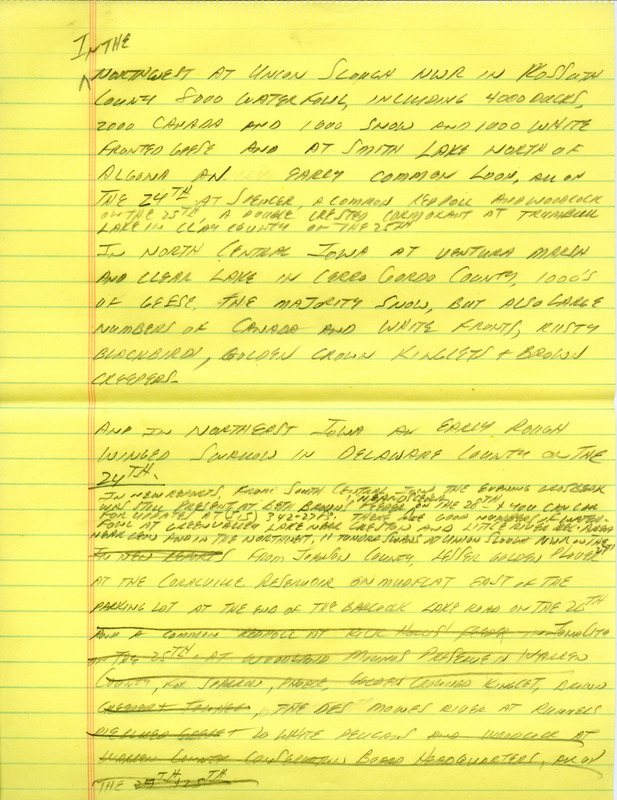 IN THE
NORTHWEST AT UNION SLOUGH NWR IN KOSSUTH
COUNTY 8000 WATERFOWL, INCLUDING 4000 DUCKS,
2000 CANADA AND 1000 SNOW AND 1000 WHITE
FRONTED GEESE AND AT SMITH LAKE NORTH OF
ALGONA AN EARLY COMMON LOON, ALL ON
THE 24TH. AT SPENCER, A COMMON REDPOLL AND WOODCOCK
ON THE 25TH, A DOUBLE CRESTED CORMORANT AT TRUMBULL
LAKE IN CLAY COUNTY ON THE 25TH
IN NORTH CENTRAL IOWA AT VENTURA MARSH
AND CLEAR LAKE IN CERRO GORDO COUNTY, 1000'S
OF GEESE, THE MAJORITY SNOW, BUT ALSO LARGE
NUMBERS OF CANADA AND WHITE FRONTS, RUSTY
BLACKBIRDS, GOLDEN CROWN KINGLETS + BROWN
CREEPERS.
AND IN NORTHEAST IOWA AN EARLY ROUGH
WINGED SWALLOW IN DELAWARE COUNTY ON THE
24TH.
IN NEW REPORTS, FROM SOUTH CENTRAL IOWA THE EVENING GROSBEAK
WAS STILL PRESENT AT BETH BROWN'S FEEDER NEAR OSCEOLA ON THE 26TH + YOU CAN CALL
FOR UPDATES AT (515) 342- THERE ARE GOOD NUMBERS OF WATER-
FOWL AT GREEN VALLEY LAKE NEAR CRESTON AND LITTLE RIVER
NEAR LEON AND IN THE NORTHWEST, 11 TUNDRA SWANS AT UNION SLOUGH NWR ON THE
IN NEW REPORTS FROM JOHNSON COUNTY, LESSER GOLDEN PLOVER
AT THE CORALVILLE RESERVOIR ON MUDFLAT EAST OF THE
PARKING LOT AT THE END OF THE BABCOCK LAKE ROAD ON THE 26TH
AND A COMMON REDPOLL AT RICK HOLLIS' FEEDER IN
ON THE 25TH. AT WOODLAND MOUNDS PRESERVE IN WARREN
COUNTY, FOX SPARROW, PHOEBE, GOLDEN CROWNED KINGLET, BROWN
CREEPER + , THE DES MOINES RIVER AT RUNNELS
20 WHITE PELICANS AND WOODCOCK AT
WARREN COUNTY CONSERVATION BOARD HEADQUARTERS, ALL ON
THE 25TH